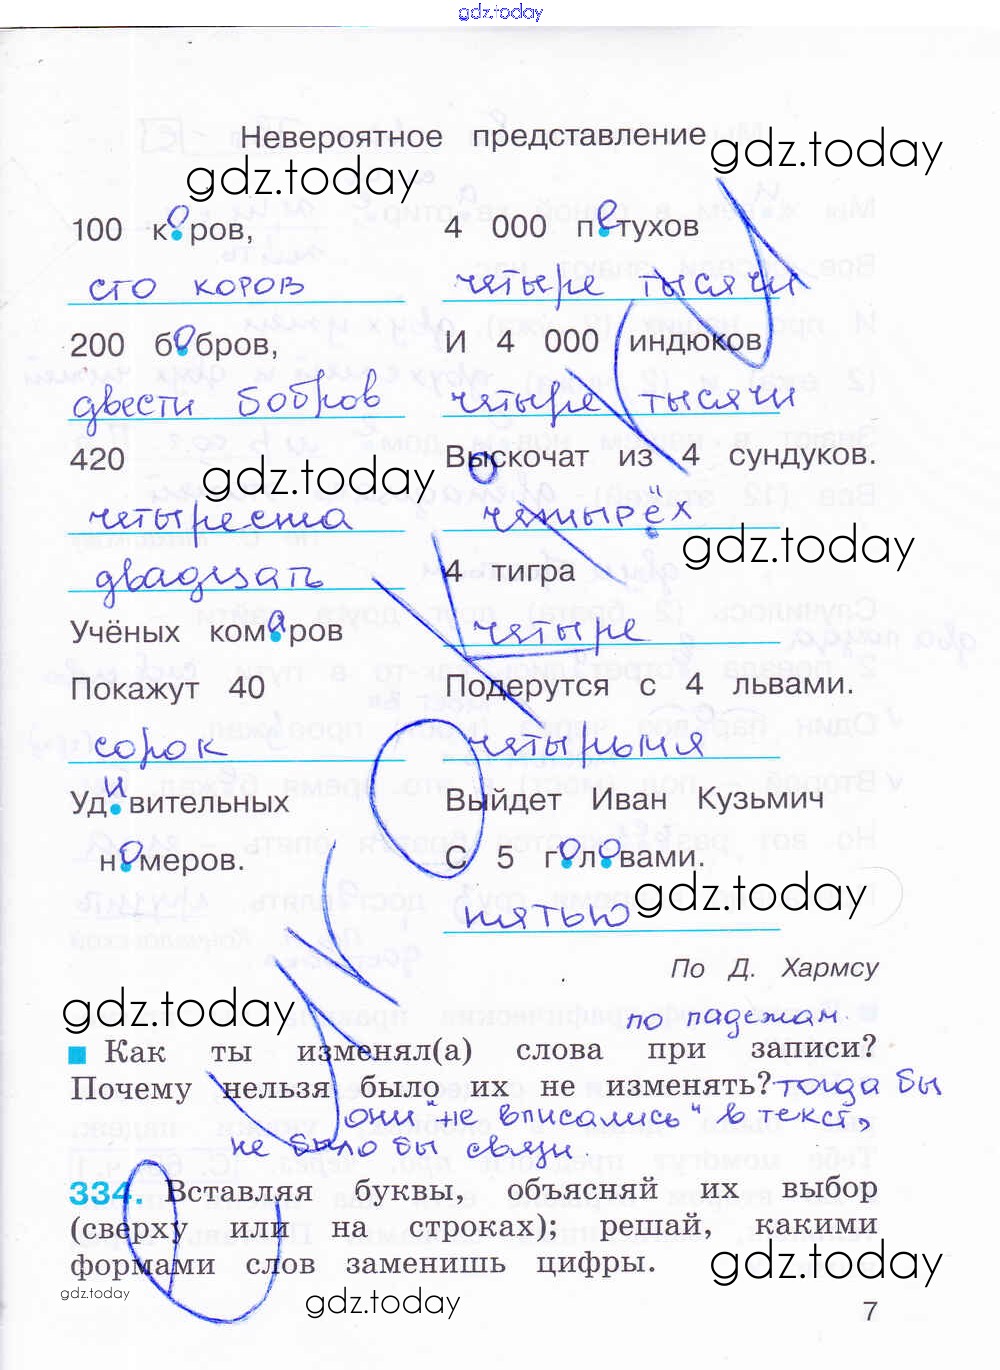 gdz.today
Невероятное представление
gdz.today
gdz.today
100 коров,
сто коров
200 бобров,
двести бобров
420
gdz.today
четыреста
двадцать
Учёных комаров
Покажут 40
сорок
Удивительных
номеров.
4 000 петухов
четыре тысячи
И 4 000 индюков
четыре тысячи
Выскочат из 4 сундуков.
четырёх
gdz.today
4 тигра
четыре
Подерутся с 4 львами.
четырьмя
Выйдет Иван Кузьмич
С 5 головами.
gdz.today
пятью
По Д. Хармсу
gdz.today
по падежам.
Как ты изменял(а) слова при записи?
Почему нельзя было их не изменять? тогда бы
они "не вписались" в текст,
не было бы связи.
334. Вставляя буквы, объясняй их выбор
(сверху или на строках); решай, какими
формами слов заменишь цифры.
gdz.today
gdz.today
gdz.today
7